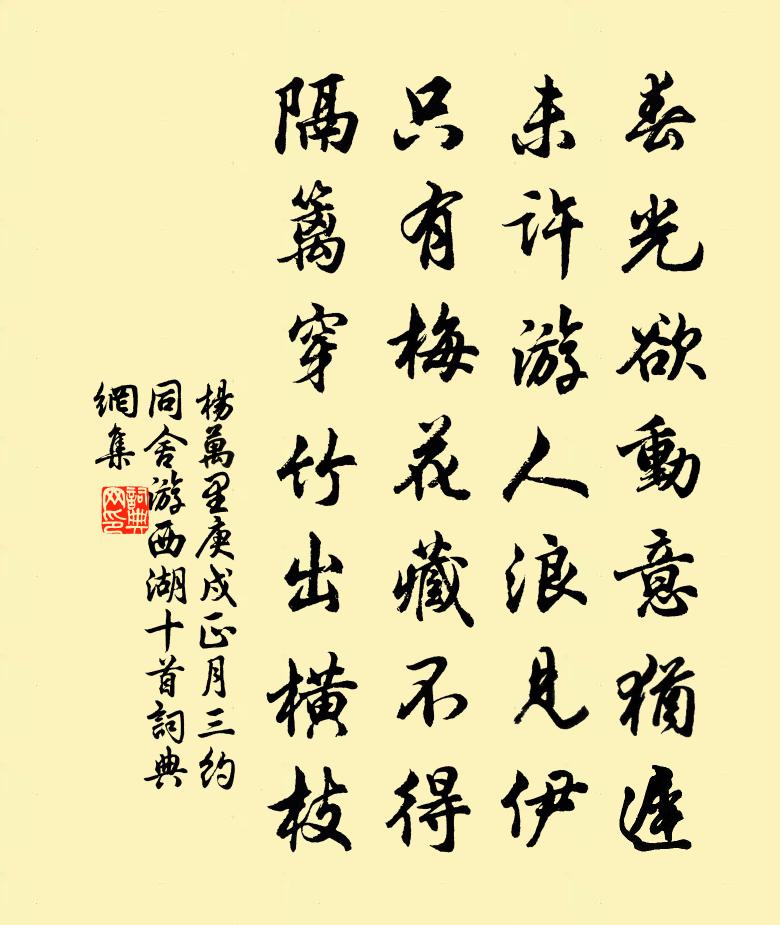 春光欲動意猶遲
未許游人浪見伊
只有梅花藏不得
隔籬穿竹出橫枝
楊萬里庚戌正月三約
同舍游西湖十首詞典
網集
詞典
网印